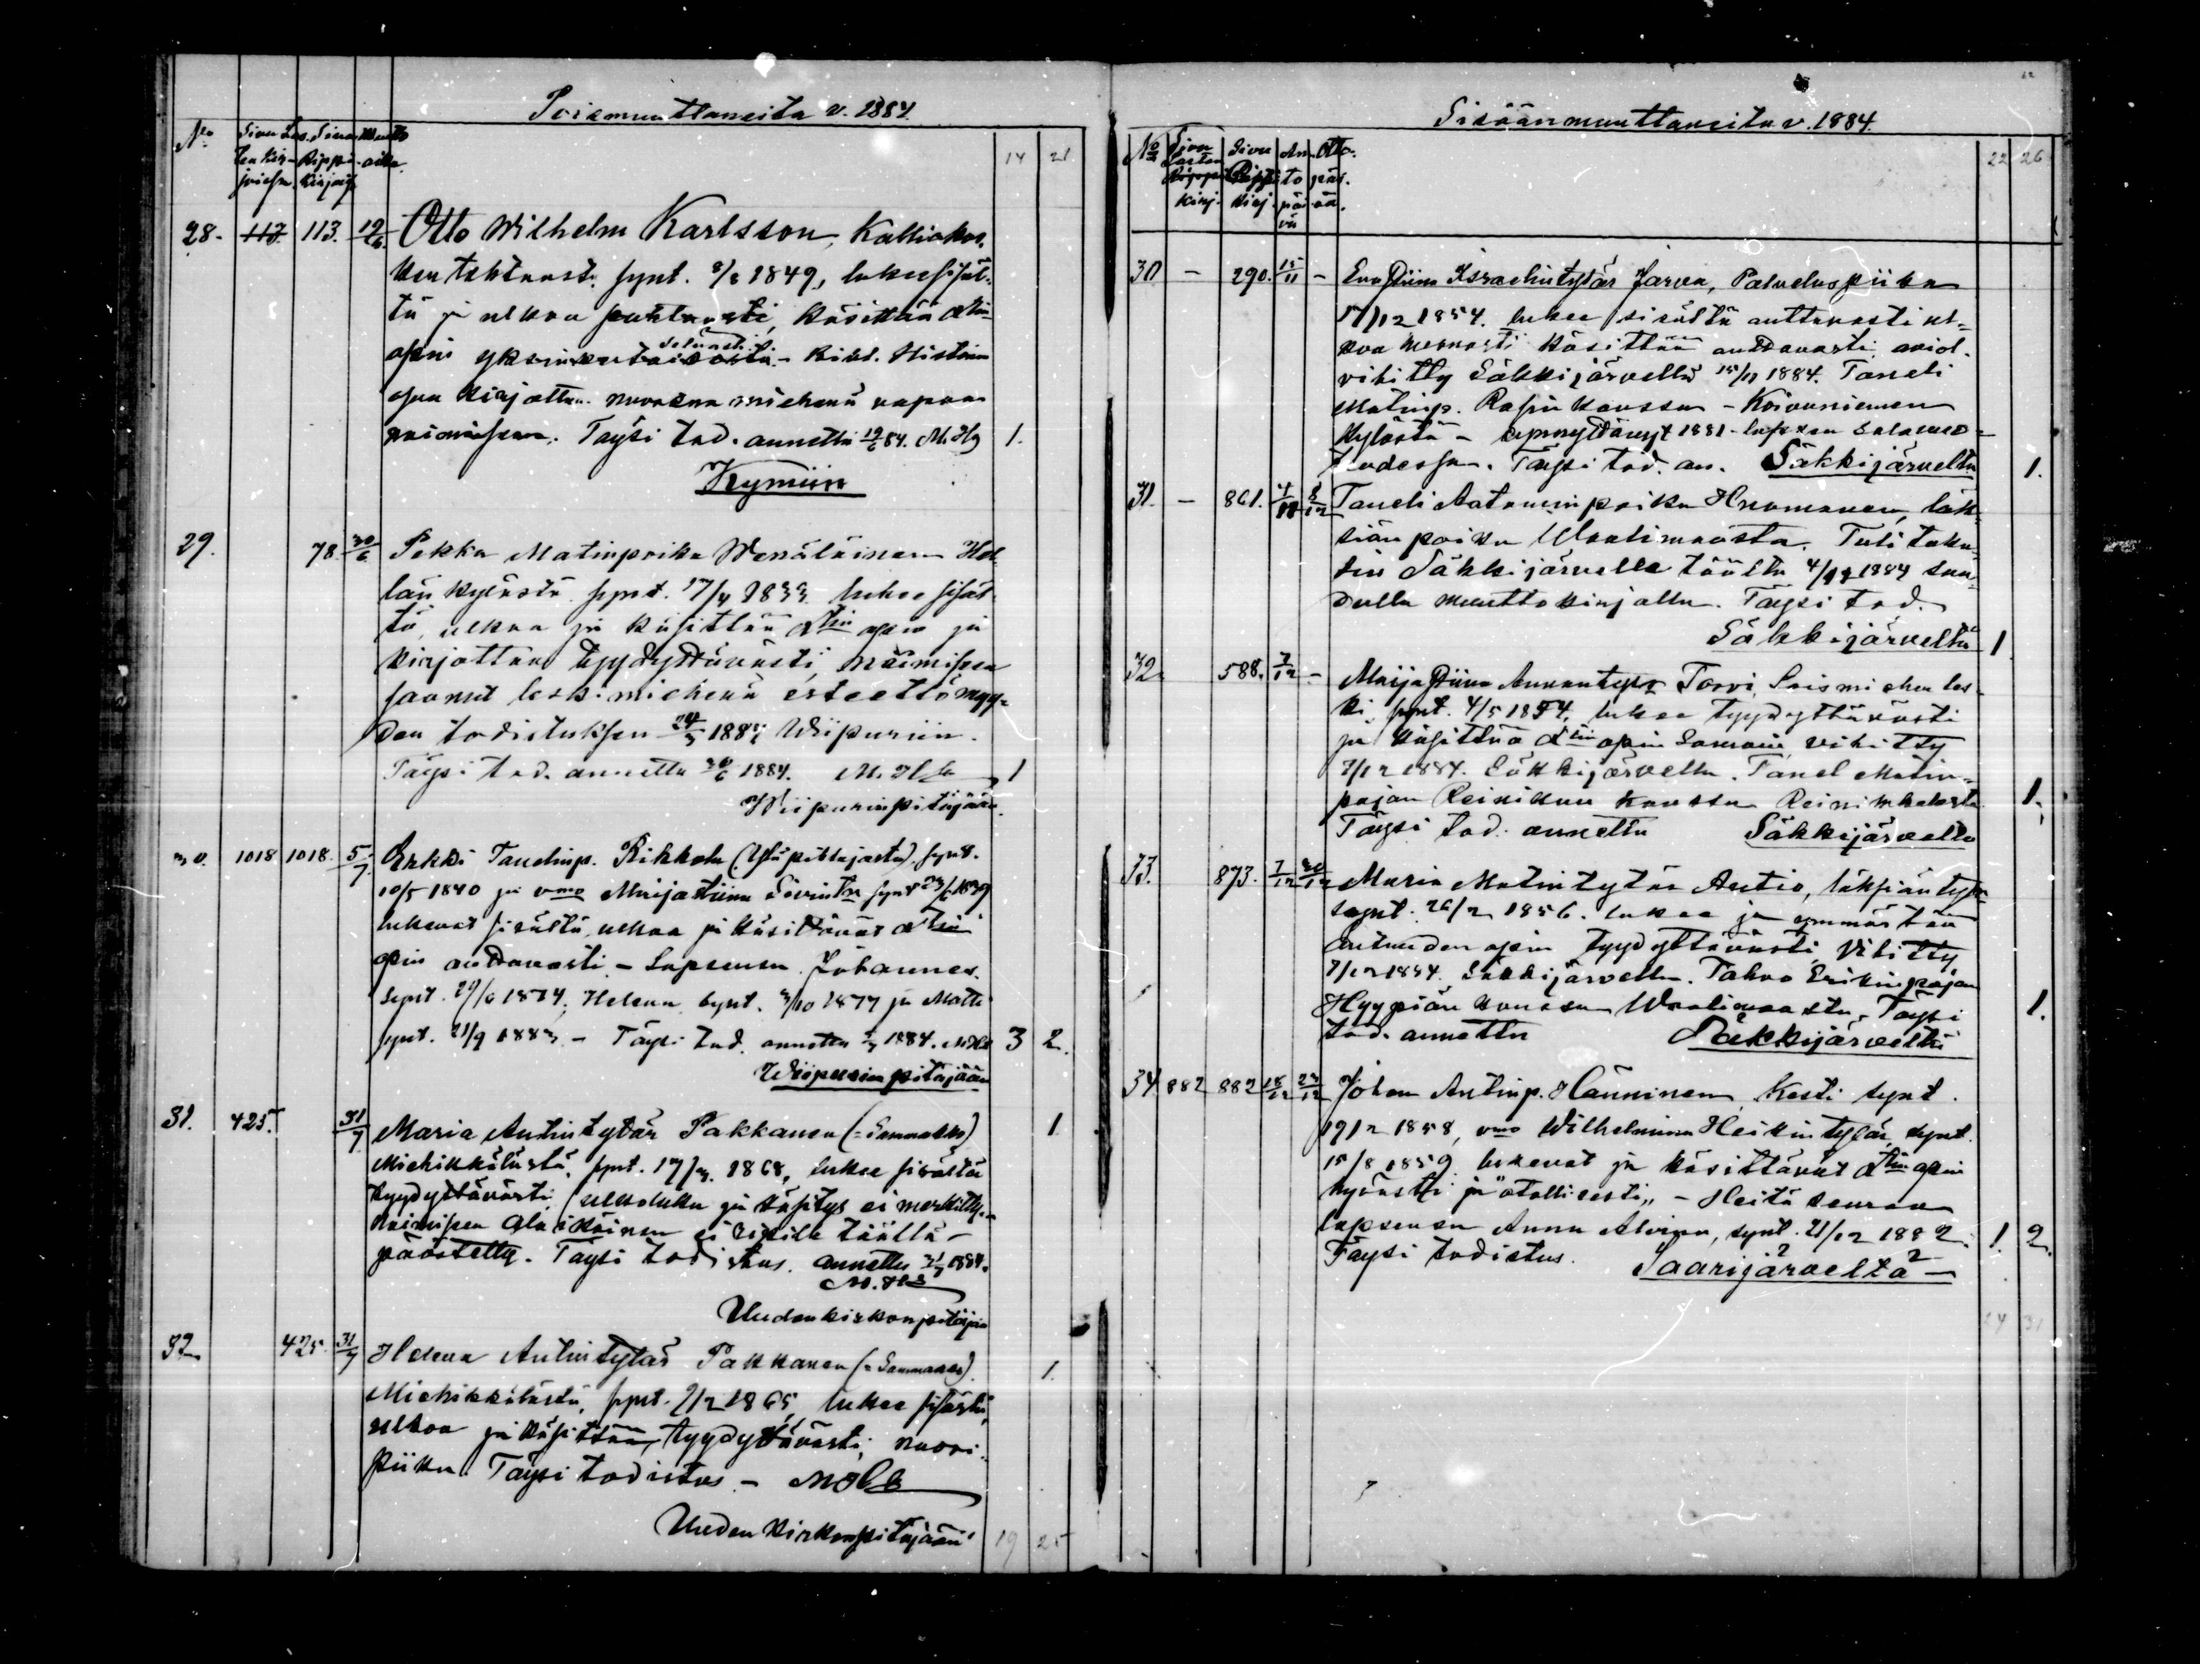 Poismuuttaneita v. 1884.
No Sivu Las- Sivu Muutto
ten kir- Rippi- aika.
joissa. kirjass. 14 21
28. 113. 113. 19/6. Otto Wilhelm Karlsson, Kalliokos-
ken tehtaast. synt. 8/6 1849, lukee sisäl-
tä ja ulkoa puhtaasti, käsittää Autu-
opin yksinkertaisesti - Bibl. Historian
osaa kirjottaa. nuorena miehenä vapaa
naimiseen. Täysi tod. annettu 19/6 84. M. Hg 1.
Kymiin
29. 78. 30/6. Pekka Matinpoika Wenäläinen Hel-
län kylästä synt. 17/4 1833. lukee sisäl-
tä, ulkoa ja käsittää Atuu opin ja
kirjottaa tyydyttävästi, naimissa
saanut leski miehenä esteettömyy-
den todistuksen 24/3 1884 Wiipuriin.
Täysi tod. annettu 30/6 1884. M. Hg 1
Wiipurinpitäjään.
30. 1018 1018. 5/7 Erkki Tanelinp. Rikkola (Yläpihlajasta). synt.
10/5 1840 ja vmo Maijastiina Sivintr synt 23/6 1839
lukevat sisältä, ulkoa ja käsittävät Atuu
opin auttavasti - Lapsensa Johannes
synt. 29/6 1874, Helena synt. 3/10 1877 ja Matti
synt. 21/9 1883 - Täysi tod. annettu 5/7 1884. MHg 3 2.
Wiipurin pitäjään
31. 425. 31/7 Maria Antintytär Pakkanen (= Sammatti) 1
Miehikkälästä, synt. 17/3. 1868, lukee sisältä
tyydyttävästi, ulkoluku ja käsitys ei merkitty.-
naimiseen alaikäinen ei ripille täällä -
päästetty. Täysi todistus. annettu 31/7 1884.
M. Hg
Uudenkirkonpitäjän
32 425. 31/7 Helena Antintytär Pakkanen (= Sammatti). 1.
Miehikkälästä, synt. 9/2 1865, lukee sisältä,
ulkoa ja käsittää, tyydyttävästi, nuori
piika. Täysi todistus - MHg
Uuden Kirkonpitäjään 19 25
Sisäänmuuttaneita v. 1884.
No Sivu Sivu An- Otto-
Lasten Rippi to päi-
kirj. kirj. päi vä. 22 26
vä
30 - 290. 15/11 - Eva Stiina Israelintytär Jarva, Palveluspiika
17/12 1854. lukee sisältä auttavasti ul-
koa heikosti käsittää auttavasti aviol.
vihitty Säkkijärvellä 15/11 1884. Taneli
Matinp. Rasin kanssa - Koivuniemen
kylästä - synnyttänyt 1881 - lapsen salavuo-
teudessa. Täysi tod. an. Säkkijärveltä 1.
31. - 861. 4/11 8/12 Taneli Aataminpoika Huomanen, läk-
siänpoika Waalimaasta. Tuli taka-
sin Säkkijärvelle täältä 4/11 1884 saa-
dulla muuttokirjalla. Täysi tod.
Säkkijärveltä 1
32. 588. 7/12 - Maija Stiina Annantytr Torvi, Loismiehen les-
ki, synt. 4/5 1854, lukee tyydyttävästi
ja käsittää Atuu opin samoin vihitty
7/12 1884. Säkkijärvellä. Tanel Matin-
pojan Reinikan kanssa Reinikkalasta 1.
Täysi tod. annettu Säkkijärveltä
33. 873. 7/12 30/12 Maria Matintytär Antio, läksiäntytr
synt. 26/2 1856. lukee ja ymmärtää
autuuden opin tyydyttävästi, vihitty
7/12 1884. Säkkijärvellä. Tahvo Erikinpojan
Hyypiän kanssa Waalimaasta. Täysi 1.
tod. annettu Säkkijärveltä
34 882 882 18/12 23/12 Johan Antinp. Hänninen, Kesti synt.
19/2 1858, vmo Wilhelmiina Heikintytär, synt.
15/8 1859. lukevat ja käsittävät Atuu opin
hyvästi ja "atallisesti" - Heitä seuraa
lapsensa Anna Alviina, synt. 21/12 1882. 1. 2.
Täysi todistus. Saarijärveltä
14 31